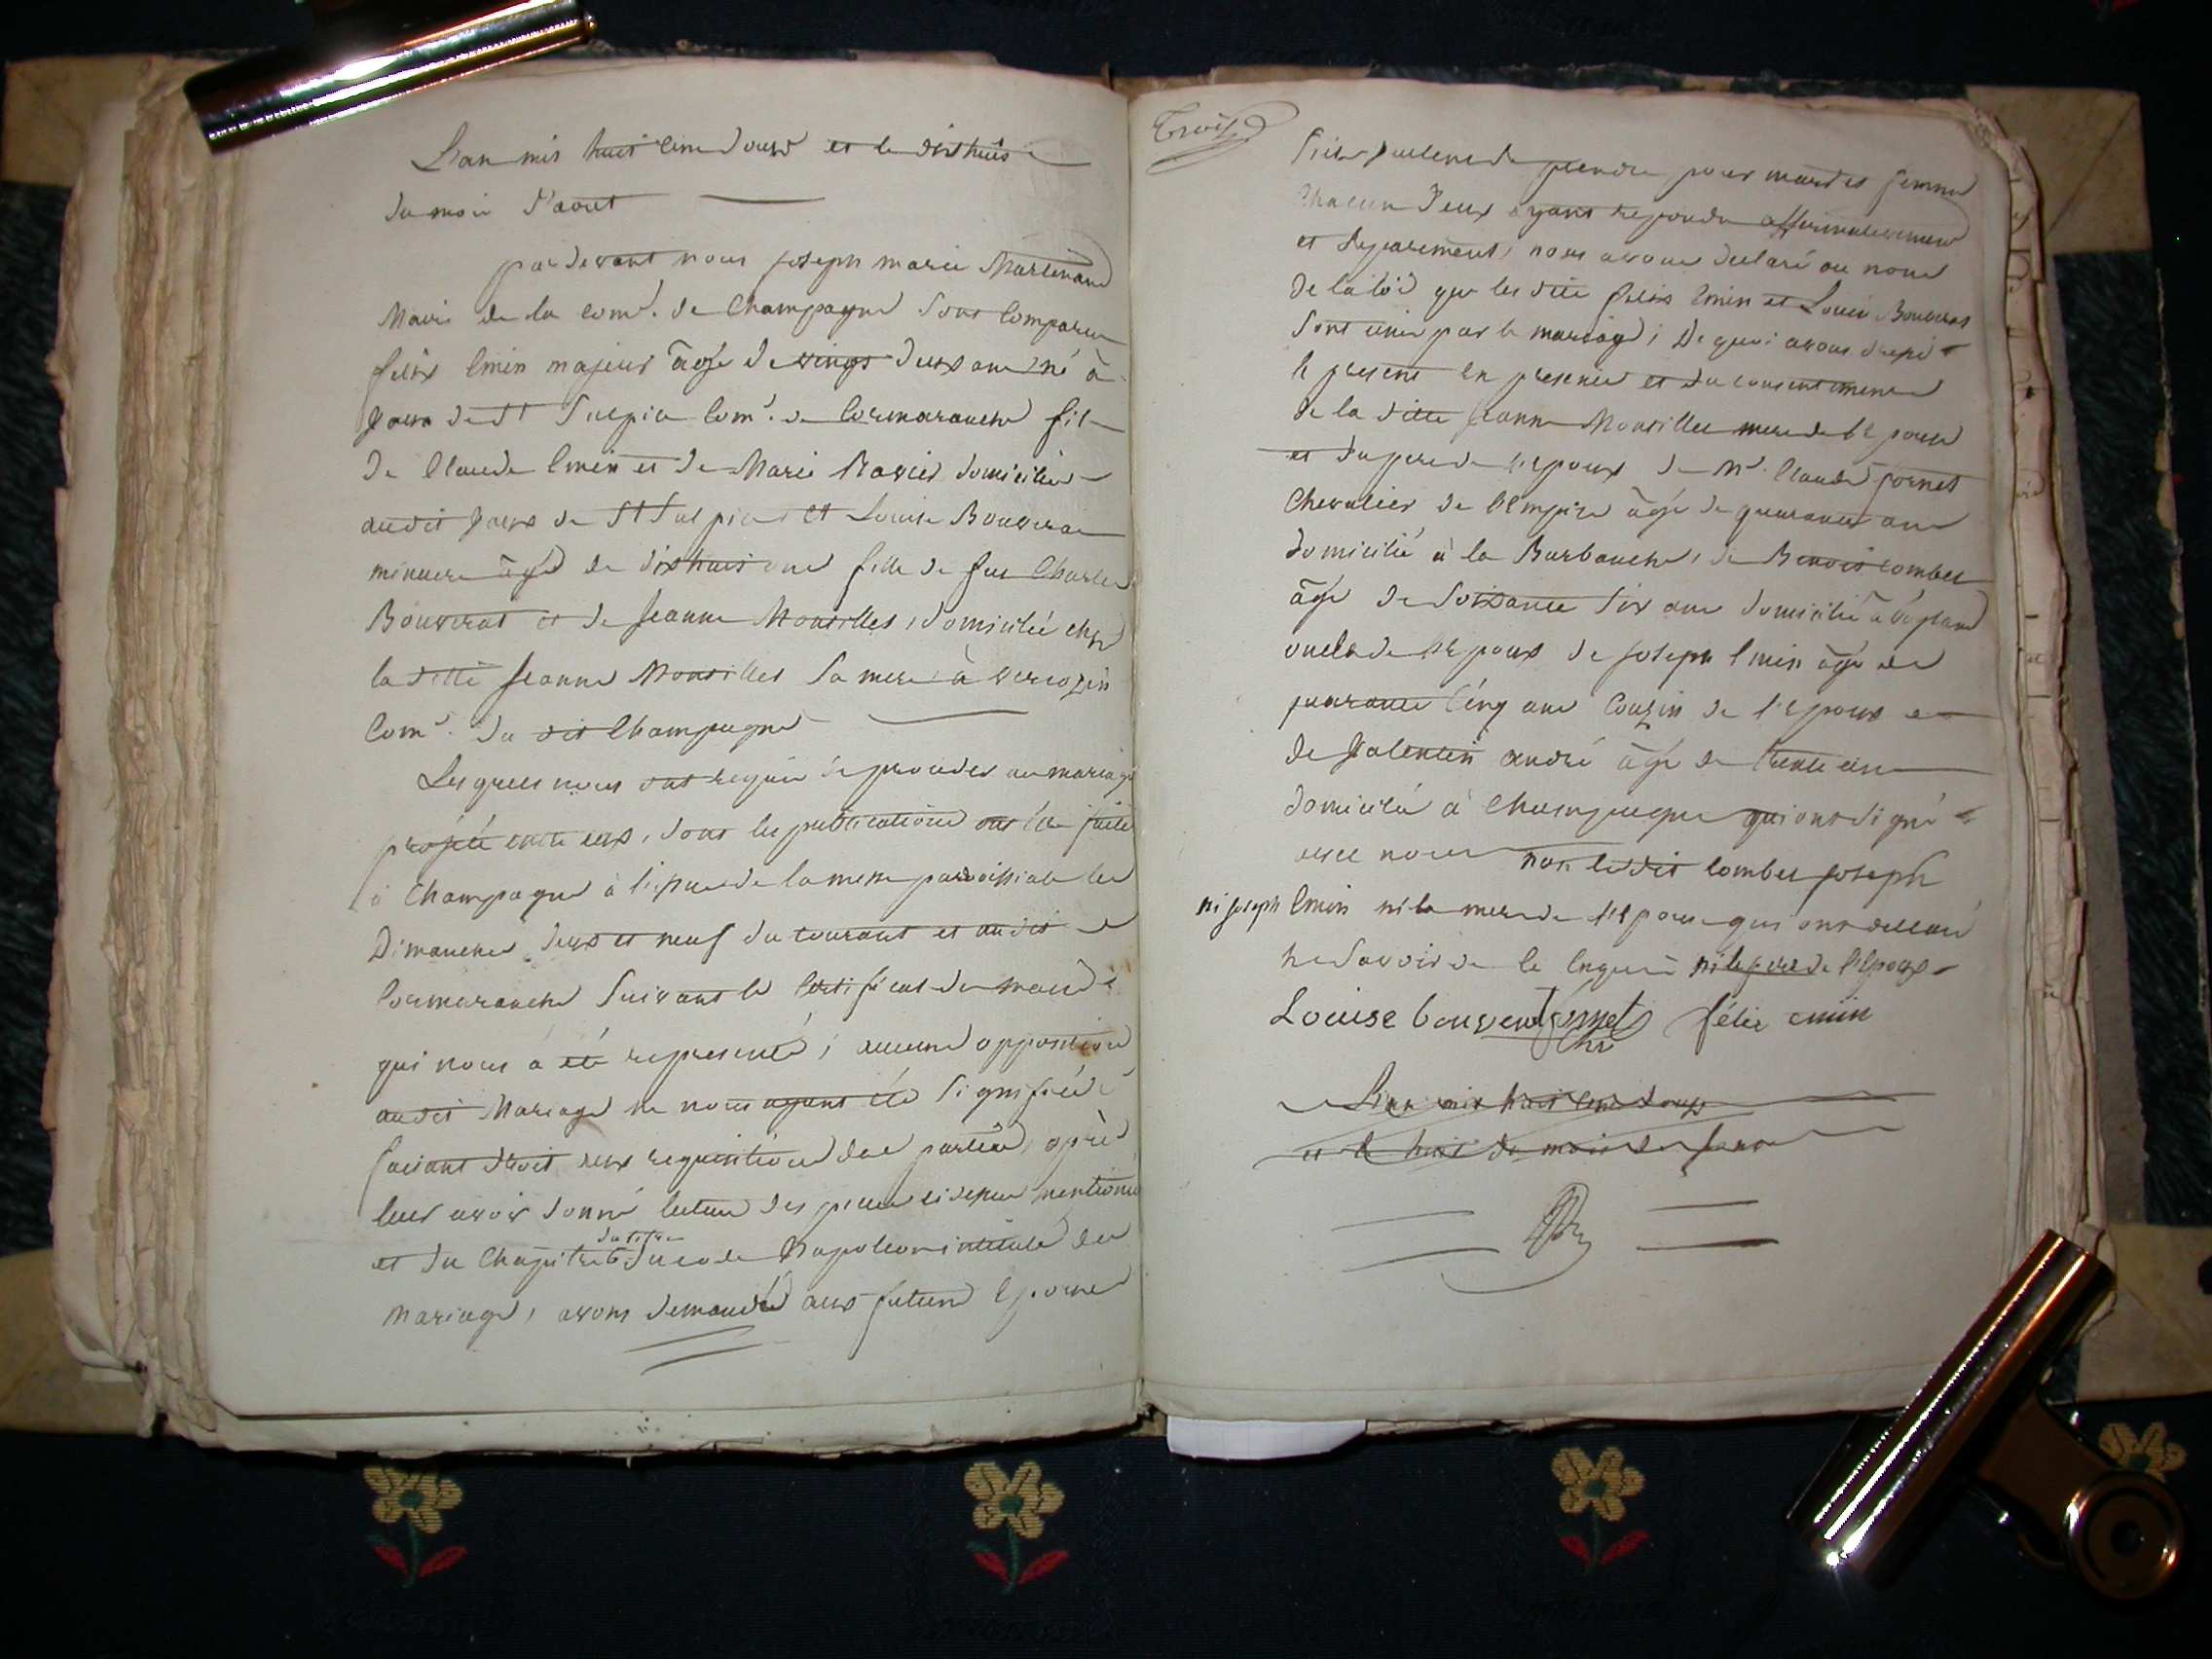 L'an mis huit cent douze et le dixhuit
du mois d'aout
par devant nous joseph marie Martinand
Maire de la com.e de Champagne sont comparu
felix Emin majeur âgé de vingt deux ans né à
de St Sulpice com.e de Cormaranche fils
de Claude Emin et de Marie Ravier domiciliés
audit de St Sulpice et Louise Bouverat
mineure âgé de dixhuit ans fille de feu Charles
Bouverat et de Jeanne Monsilles, domiciliée chez
la ditte Jeanne Monsilles sa mere à
com.e du dit Champagne
Lesquels nous ont requis de proceder au mariage
projeté entre eux, dont les publications ont été faites
à Champagne à l'issue de la messe paroissiale les
Dimanches deux et neuf du courant et audit
Cormaranche suivant le certificat du maire
qui nous a été representé; aucune opposition
audit Mariage ne nous ayant été signifiée
faisant droit aux requisitions des parties, après
leur avoir donné lecture des pieces ci dessus mentionnés
du titre
et du Chapitre 6 du code Napoleon intitulé du
Mariage, avons demandé aux futurs Epoux
Trois
s'ils veulent se prendre pour mari et femme
chacun d'eux ayant repondu affirmativement
et separement, nous avons declaré au nom
de la loi que les dits felix Emin et Louise Bouverat
sont unis par le mariage; De quoi avons
le present en presence et du consentement
de la ditte Jeanne Monsilles mere de l'Epouse
et du pere de l'epoux de Mr. Claude fornet
Chevalier de l'Empire âgé de quarante ans
domicilié à la Burbanche, de Benoit combet
âgé de soixante six ans domicilié à
oncle de l'Epoux de joseph Emin âgé de
quarante cinq ans Couzin de l'Epoux
de Valentin andré âgé de trente ans
domicilié à Champagne qui ont signé
avec nous non ledit combet joseph
ni joseph Emin ni la mere de l'Epouse qui ont declaré
ne savoir de le enquis ni le pere de l'Epoux
Louise bouverat fornet félix emin
Chr
L'an mis huit cent douze
et le huit du mois de